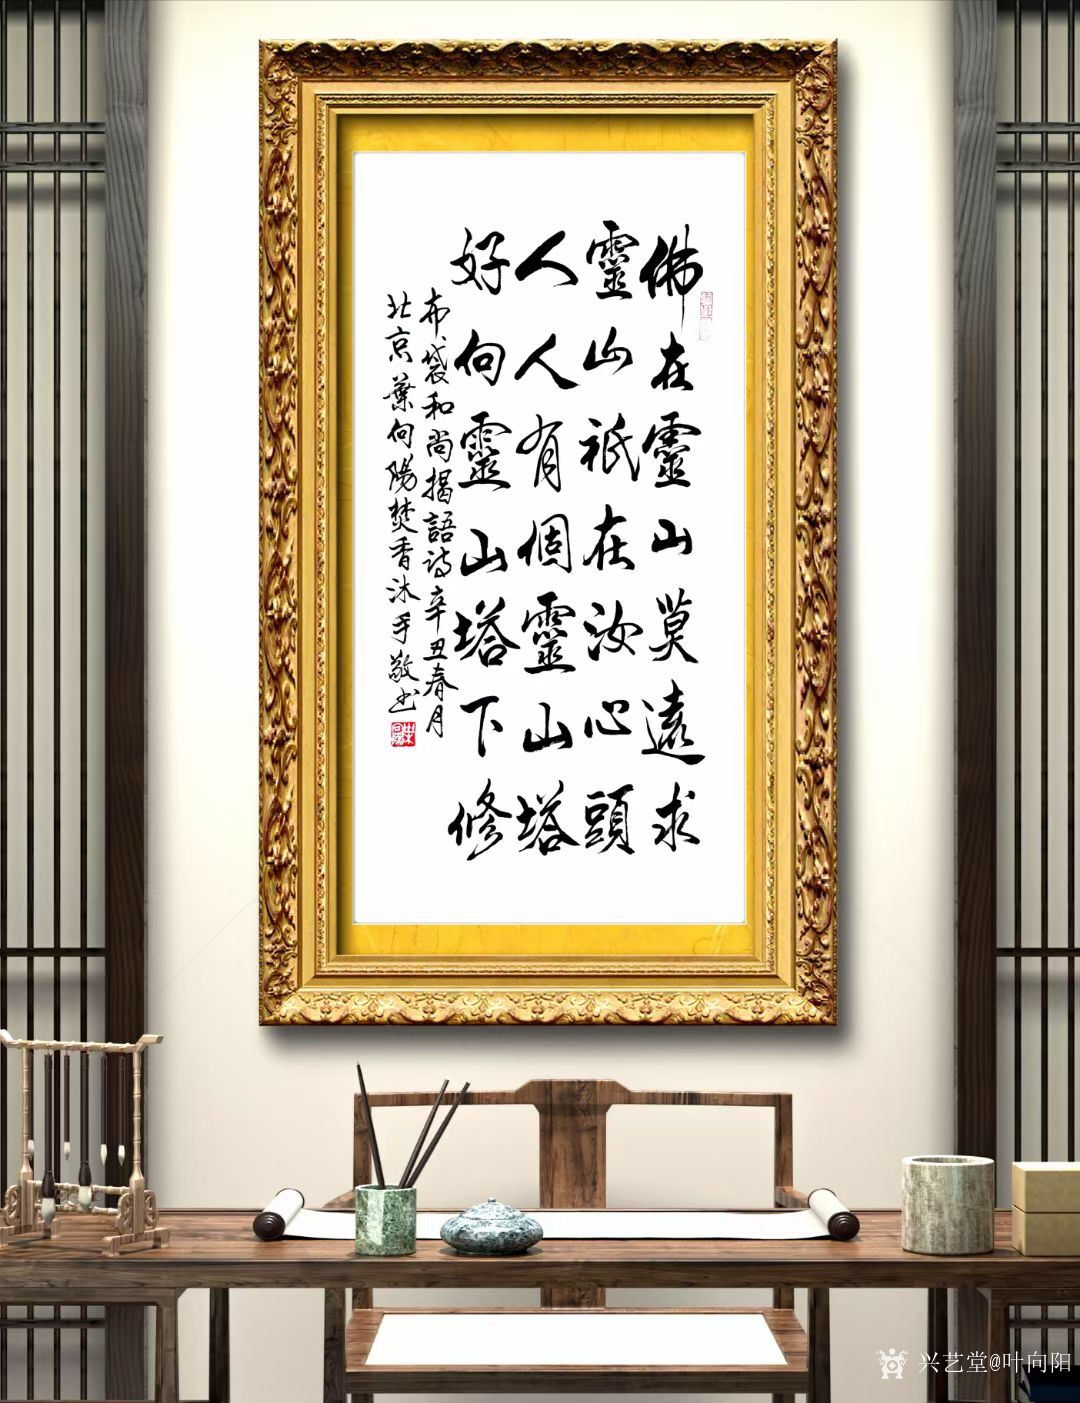 佛在靈山莫遠求
靈山祇在汝心頭
人人有個靈山塔
好向靈山塔下修
布袋和尚揭語詩辛丑春月
北京葉向陽焚香沐手敬书
兴艺堂@叶向阳